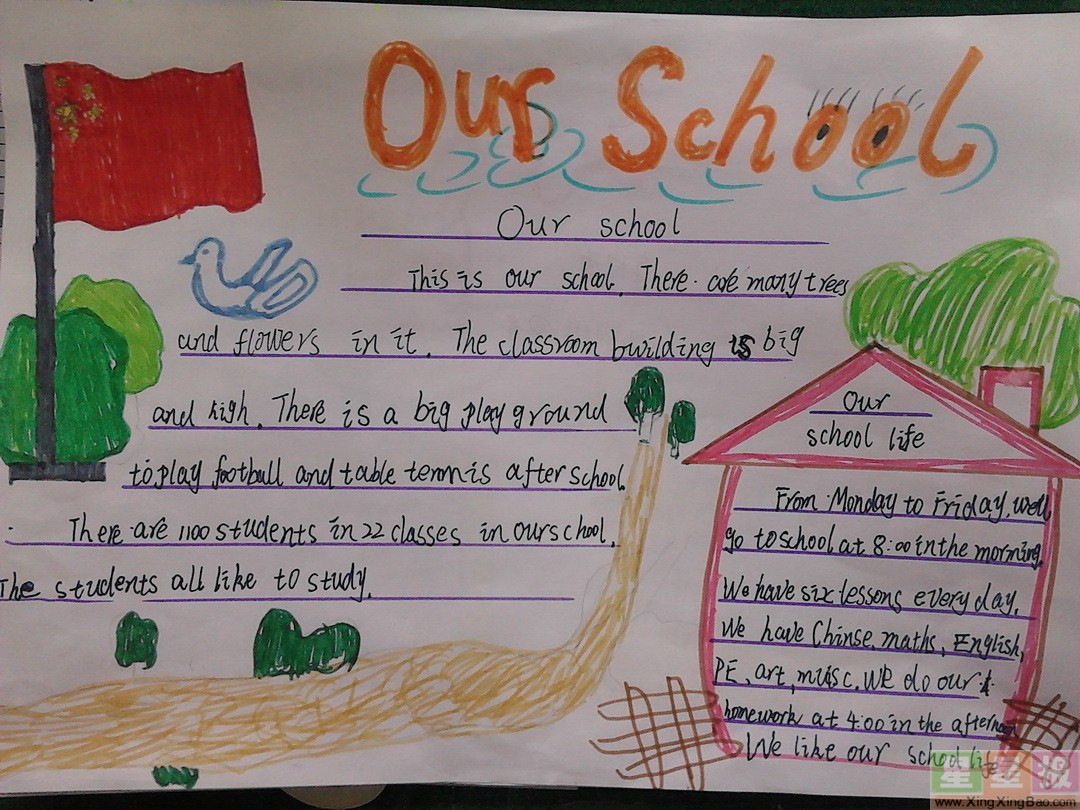 Our School
Our school
This is our school. There are many trees
and flowers in it. The classroom building is big
and high. There is a big play ground
to play football and table tennis after school.
There are 1100 students in 22 classes in our school.
The students all like to study.
Our
school life
From Monday to Friday, we
go to school at 8:00 in the morning.
We have six lessons every day.
We have Chinse, maths, English,
PE, art, muisc. We do our
homework at 4:00 in the afternoon
We like our school life
星星报
www.XingXingBao.com